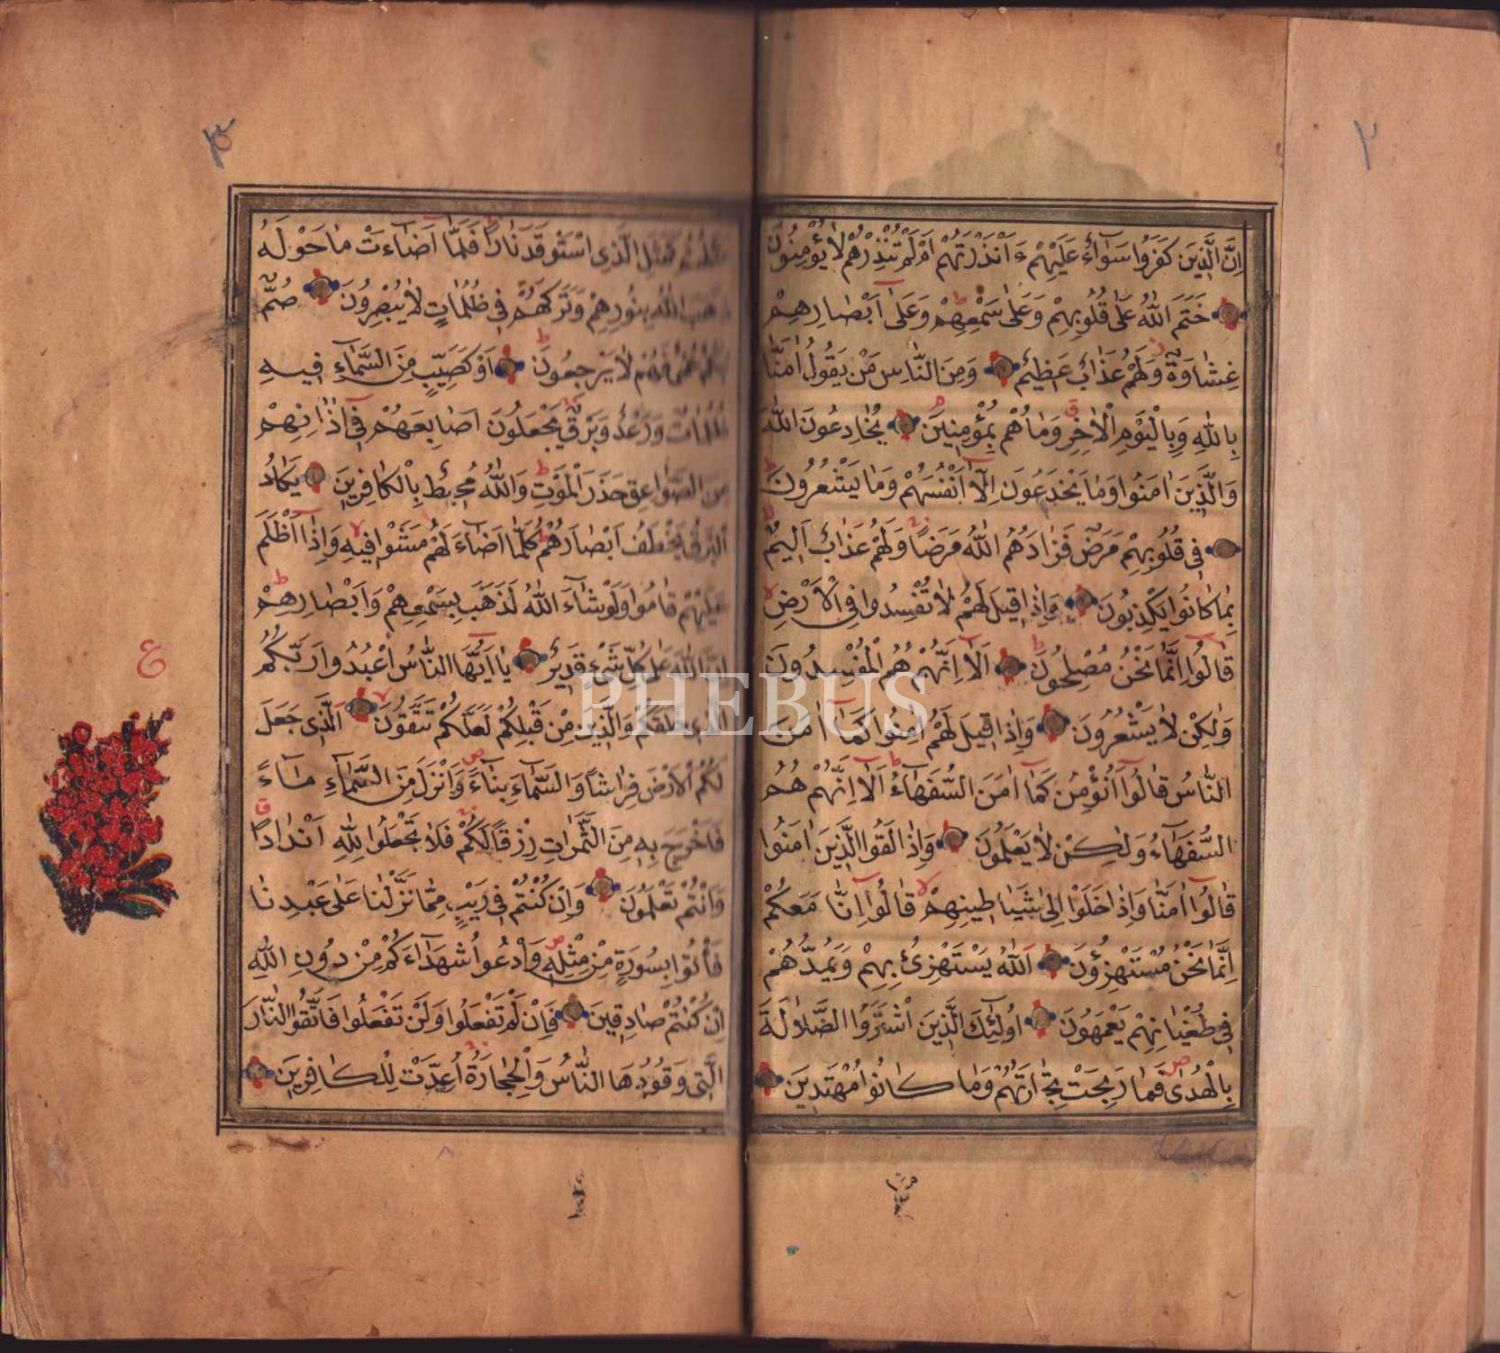 ٢
اِنَّ الَّذِينَ كَفَرُوا سَوَاءٌ عَلَيْهِمْ ءَاَنْذَرْتَهُمْ اَمْ لَمْ تُنْذِرْهُمْ لَا يُؤْمِنُونَ
خَتَمَ اللّٰهُ عَلٰى قُلُوبِهِمْ وَعَلٰى سَمْعِهِمْ وَعَلٰى اَبْصَارِهِمْ
غِشَاوَةٌ وَلَهُمْ عَذَابٌ عَظِيمٌ وَمِنَ النَّاسِ مَنْ يَقُولُ اٰمَنَّا
بِاللّٰهِ وَبِالْيَوْمِ الْاٰخِرِ وَمَا هُمْ بِمُؤْمِنِينَ يُخَادِعُونَ اللّٰهَ
وَالَّذِينَ اٰمَنُوا وَمَا يَخْدَعُونَ اِلَّا اَنْفُسَهُمْ وَمَا يَشْعُرُونَ
فِي قُلُوبِهِمْ مَرَضٌ فَزَادَهُمُ اللّٰهُ مَرَضًا وَلَهُمْ عَذَابٌ اَلِيمٌ
بِمَا كَانُوا يَكْذِبُونَ وَاِذَا قِيلَ لَهُمْ لَا تُفْسِدُوا فِي الْاَرْضِ
قَالُوا اِنَّمَا نَحْنُ مُصْلِحُونَ اَلَا اِنَّهُمْ هُمُ الْمُفْسِدُونَ
وَلٰكِنْ لَا يَشْعُرُونَ وَاِذَا قِيلَ لَهُمْ اٰمِنُوا كَمَا اٰمَنَ
النَّاسُ قَالُوا اَنُؤْمِنُ كَمَا اٰمَنَ السُّفَهَاءُ اَلَا اِنَّهُمْ هُمُ
السُّفَهَاءُ وَلٰكِنْ لَا يَعْلَمُونَ وَاِذَا لَقُوا الَّذِينَ اٰمَنُوا
قَالُوا اٰمَنَّا وَاِذَا خَلَوْا اِلٰى شَيَاطِينِهِمْ قَالُوا اِنَّا مَعَكُمْ
اِنَّمَا نَحْنُ مُسْتَهْزِؤُنَ اَللّٰهُ يَسْتَهْزِئُ بِهِمْ وَيَمُدُّهُمْ
فِي طُغْيَانِهِمْ يَعْمَهُونَ اُولٰئِكَ الَّذِينَ اشْتَرَوُا الضَّلَالَةَ
بِالْهُدٰى فَمَا رَبِحَتْ تِجَارَتُهُمْ وَمَا كَانُوا مُهْتَدِينَ
مَثَلُهُمْ كَمَثَلِ الَّذِي اسْتَوْقَدَ نَارًا فَلَمَّا اَضَاءَتْ مَا حَوْلَهُ
ذَهَبَ اللّٰهُ بِنُورِهِمْ وَتَرَكَهُمْ فِي ظُلُمَاتٍ لَا يُبْصِرُونَ صُمٌّ
بُكْمٌ عُمْيٌ فَهُمْ لَا يَرْجِعُونَ اَوْ كَصَيِّبٍ مِنَ السَّمَاءِ فِيهِ
ظُلُمَاتٌ وَرَعْدٌ وَبَرْقٌ يَجْعَلُونَ اَصَابِعَهُمْ فِي اٰذَانِهِمْ
مِنَ الصَّوَاعِقِ حَذَرَ الْمَوْتِ وَاللّٰهُ مُحِيطٌ بِالْكَافِرِينَ يَكَادُ
الْبَرْقُ يَخْطَفُ اَبْصَارَهُمْ كُلَّمَا اَضَاءَ لَهُمْ مَشَوْا فِيهِ وَاِذَا اَظْلَمَ
عَلَيْهِمْ قَامُوا وَلَوْ شَاءَ اللّٰهُ لَذَهَبَ بِسَمْعِهِمْ وَاَبْصَارِهِمْ
اِنَّ اللّٰهَ عَلٰى كُلِّ شَيْءٍ قَدِيرٌ يَا اَيُّهَا النَّاسُ اعْبُدُوا رَبَّكُمُ
الَّذِي خَلَقَكُمْ وَالَّذِينَ مِنْ قَبْلِكُمْ لَعَلَّكُمْ تَتَّقُونَ اَلَّذِي جَعَلَ
لَكُمُ الْاَرْضَ فِرَاشًا وَالسَّمَاءَ بِنَاءً وَاَنْزَلَ مِنَ السَّمَاءِ مَاءً
فَاَخْرَجَ بِهِ مِنَ الثَّمَرَاتِ رِزْقًا لَكُمْ فَلَا تَجْعَلُوا لِلّٰهِ اَنْدَادًا
وَاَنْتُمْ تَعْلَمُونَ وَاِنْ كُنْتُمْ فِي رَيْبٍ مِمَّا نَزَّلْنَا عَلٰى عَبْدِنَا
فَأْتُوا بِسُورَةٍ مِنْ مِثْلِهِ وَادْعُوا شُهَدَاءَكُمْ مِنْ دُونِ اللّٰهِ
اِنْ كُنْتُمْ صَادِقِينَ فَاِنْ لَمْ تَفْعَلُوا وَلَنْ تَفْعَلُوا فَاتَّقُوا النَّارَ
الَّتِي وَقُودُهَا النَّاسُ وَالْحِجَارَةُ اُعِدَّتْ لِلْكَافِرِينَ
ع
PHEBUS